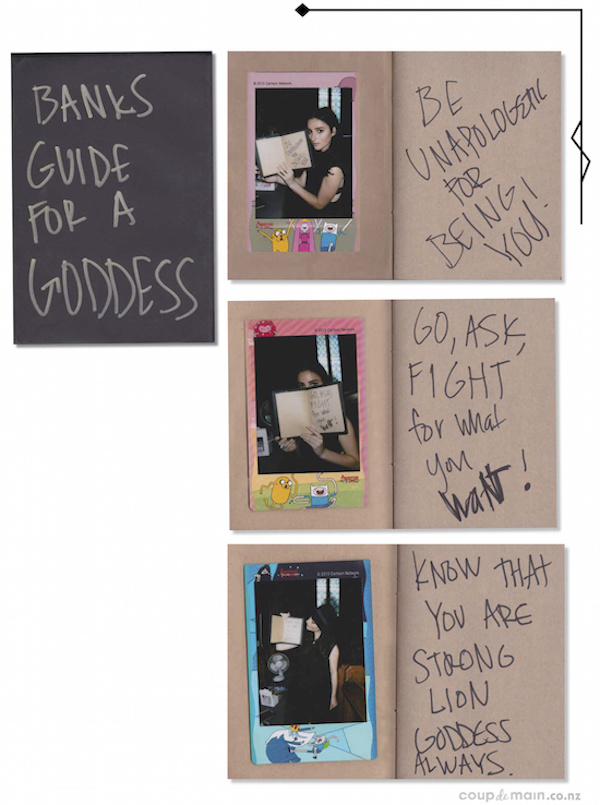 BANKS
GUIDE
FOR A
GODDESS
© 2013 Cartoon Network.
BE
UNAPOLOGETIC
FOR
BEING
YOU!
© 2013 Cartoon Network.
GO, ASK,
FIGHT
for what
you
want!
© 2013 Cartoon Network.
KNOW THAT
YOU ARE
STRONG
LION
GODDESS
ALWAYS.
coupdemain.co.nz